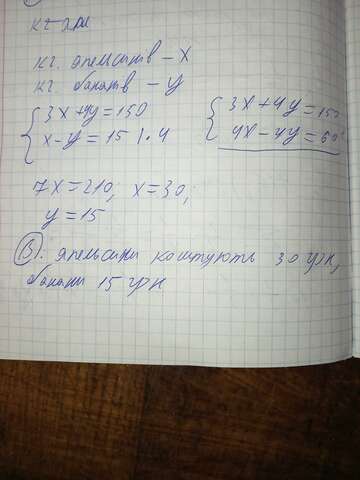 кг
кг. апельсинів – x
кг. бананів – y
{ 3x+4y=150
x-y=15 | · 4
{ 3x+4y=150
4x-4y=60
7x=210; x=30;
y=15
В: апельсини коштують 30 грн,
банани 15 грн